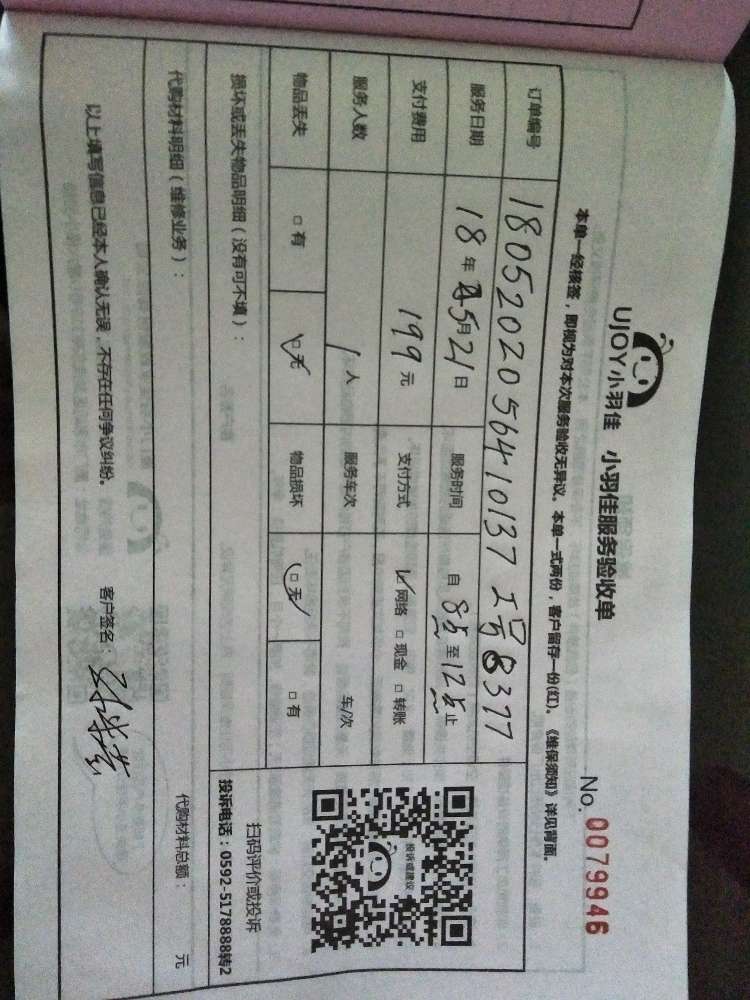 UJOY小羽佳 小羽佳服务验收单
No. 0079946
本单一经核签，即视为对本次服务验收无异议。本单一式两份，客户留存一份(红)。《维保须知》详见背面。
订单编号 180520205641037 工号8377
服务日期 18年5月21日 服务时间 自8点至12点止
支付费用 199元 支付方式 ☑网络 □现金 □转账
服务人数 1人 服务车次 车/次
物品丢失 □有 ☑无 物品损坏 ☑无 □有
投诉或建议
扫码评价或投诉
投诉电话：0592-5178888转2
损坏或丢失物品明细（没有可不填）：
代购材料明细（维修业务）： 代购材料总额： 元
以上填写信息已经本人确认无误，不存在任何争议纠纷。 客户签名：